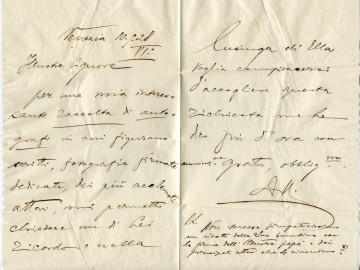 Venezia
VI:
Illustre Signore
per una mia interes
sante raccolta di auto-
grafi in cui figurano
scritti, fotografie firmate
dedicate, dei più acclamati
attori, mi permetto
chiedere un di Lei
ricordo e nella
lusinga di Ella
voglia compiacersi
d'accogliere questa
richiesta me ne
dico fin d'ora con
gratis obblig
Non
un della Sua bambina con
la firma dell'Illustre papà e dei
principali attori che la